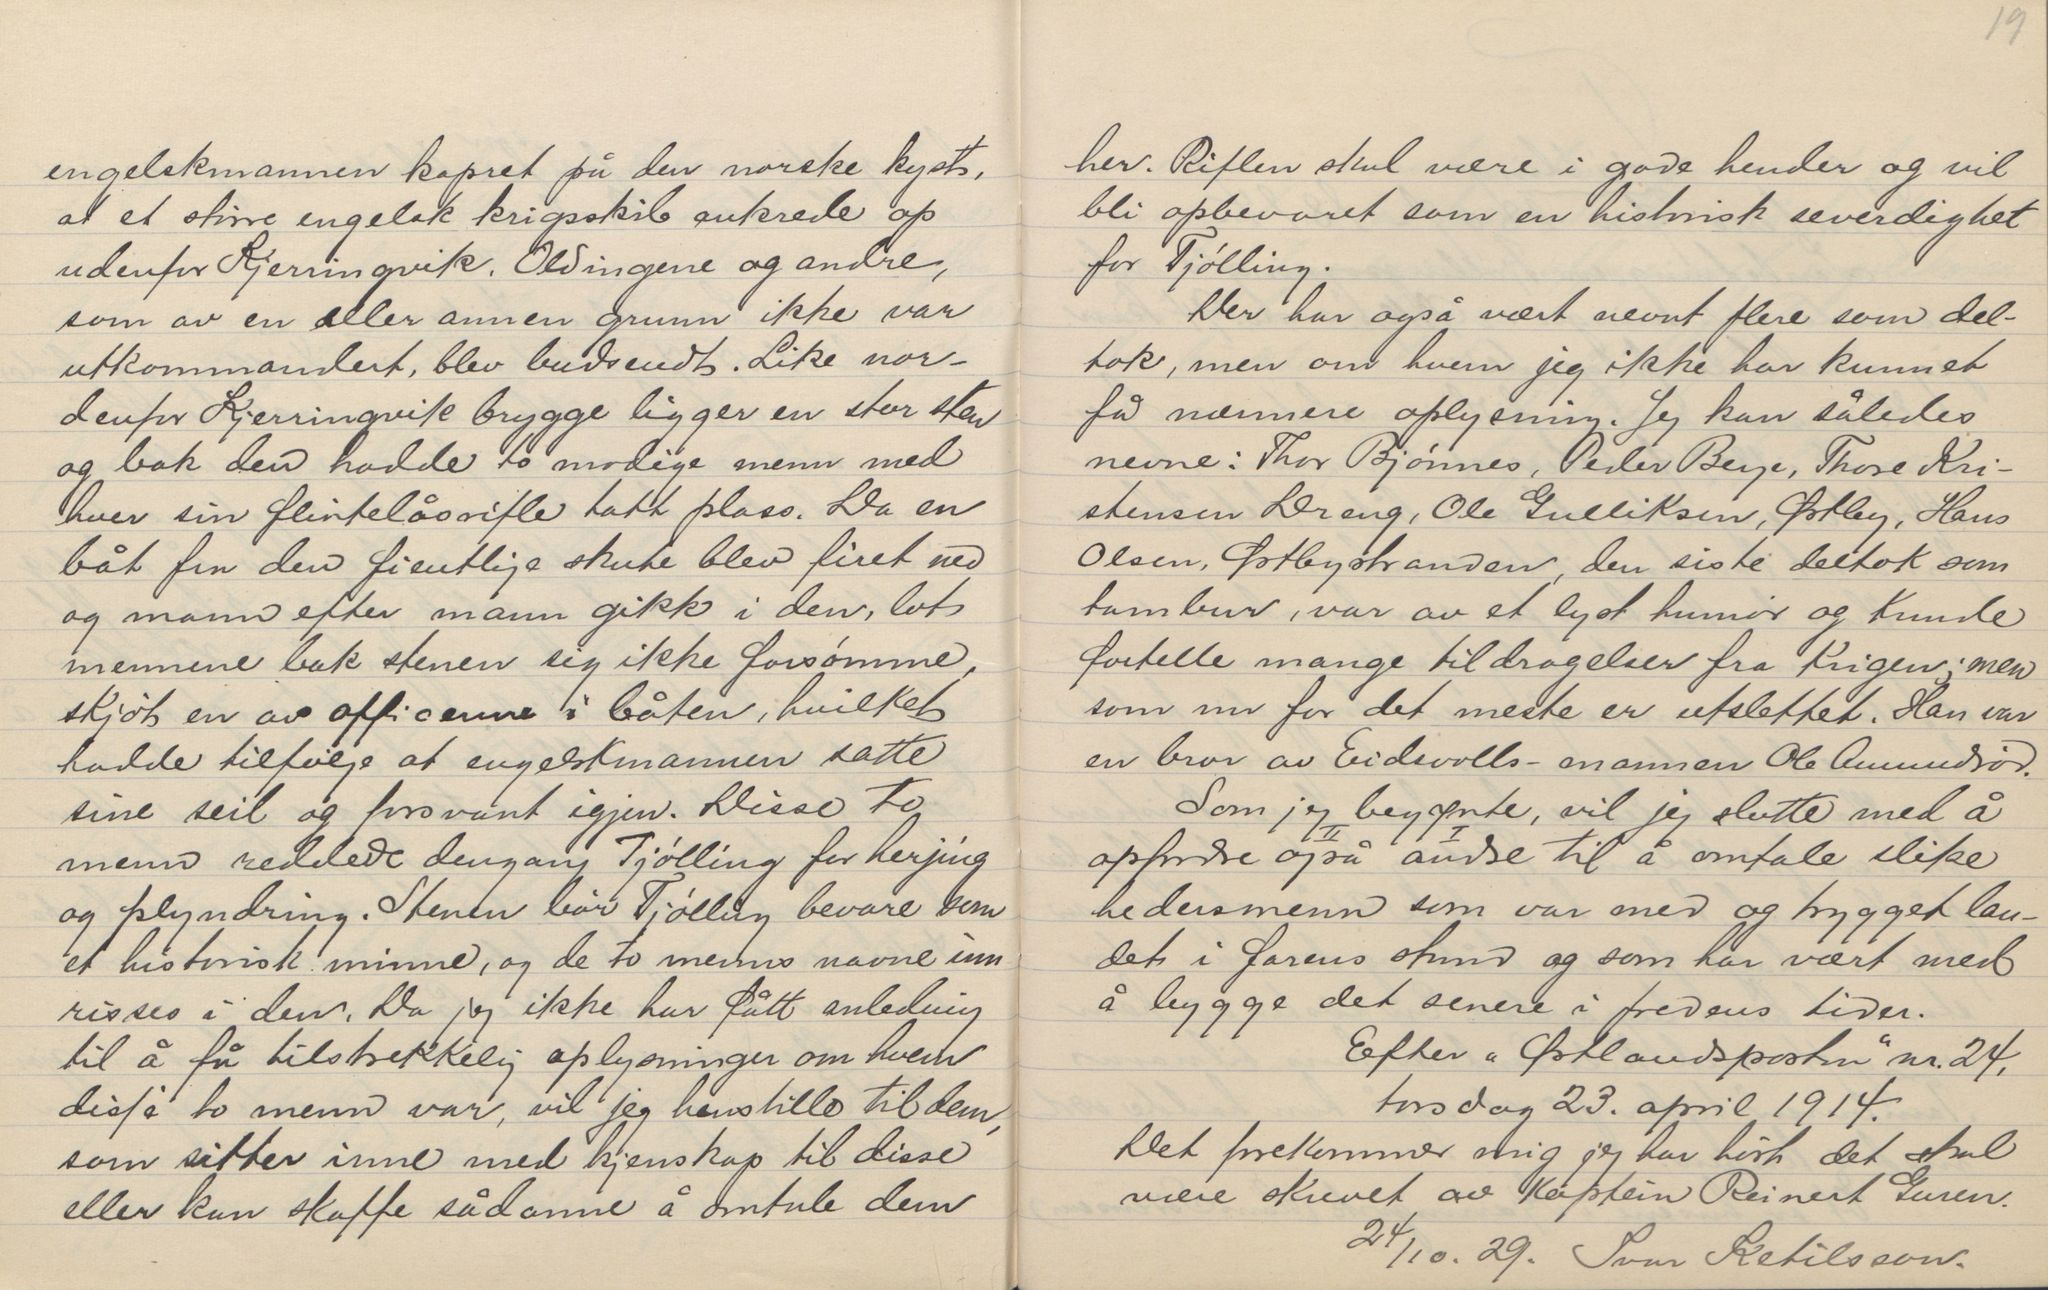 engelskmannen kapret på den norske kyst,
at et større engelsk krigsskib ankrede op
udenfor Kjerringvik. Oldingene og andre,
som av en eller annen grunn ikke var
utkommandert, blev budsendt. Like nor-
denfor Kjerringvik brygge ligger en stor sten
og bak den hadde to modige menn med
hver sin flintelåsrifle tatt plass. Da en
båt fra den fientlige skute blev firet ned
og mann efter mann gikk i den, lot
mennene bak stenen sig ikke forsømme,
skjøt en av officerene i båten, hvilket
hadde tilfølge at engelskmannen satte
sine seil og forsvant igjen. Disse to
menn reddede dengang Tjølling for herjing
og plyndring. Stenen bør Tjølling bevare som
et historisk minne, og de to menns navne inn
risses i den. Da jeg ikke har fått anledning
til å få tilstrekkelig oplysninger om hvem
disse to menn var, vil jeg henstille til dem,
som sitter inne med kjenskap til disse
eller kan skaffe sådanne å omtale dem
19
her. Riflen skal være i gode hender og vil
bli opbevaret som en historisk severdighet
for Tjølling.
Der har også vært nevnt flere som del-
tok, men om hvem jeg ikke har kunnet
få nærmere oplysning. Jeg kan således
nevne: Thor Bjønnes, Peder Berge, Thore Kri-
stensen Dreng, Ole Gulliksen, Østby, Hans
Olsen, Østbystranden, den siste deltok som
tambur, var av et lyst humør og kunde
fortelle mange tildragelser fra krigen; men
som nu for det meste er utslettet. Han var
en bror av Eidsvolls-mannen Ole Amundrød.
Som jeg begynte, vil jeg slutte med å
II I
opfordre også andre til å omtale slike
hedersmenn som var med og trygget lan-
det i farens stund og som har vært med
å bygge det senere i fredens tider.
Efter „Østlandsposten“ nr. 24,
torsdag 23. april 1914.
Det forekommer mig jeg har hørt det skal
være skrevet av kaptein Reinert Guren.
24/10. 29. Ivar Ketilsson.